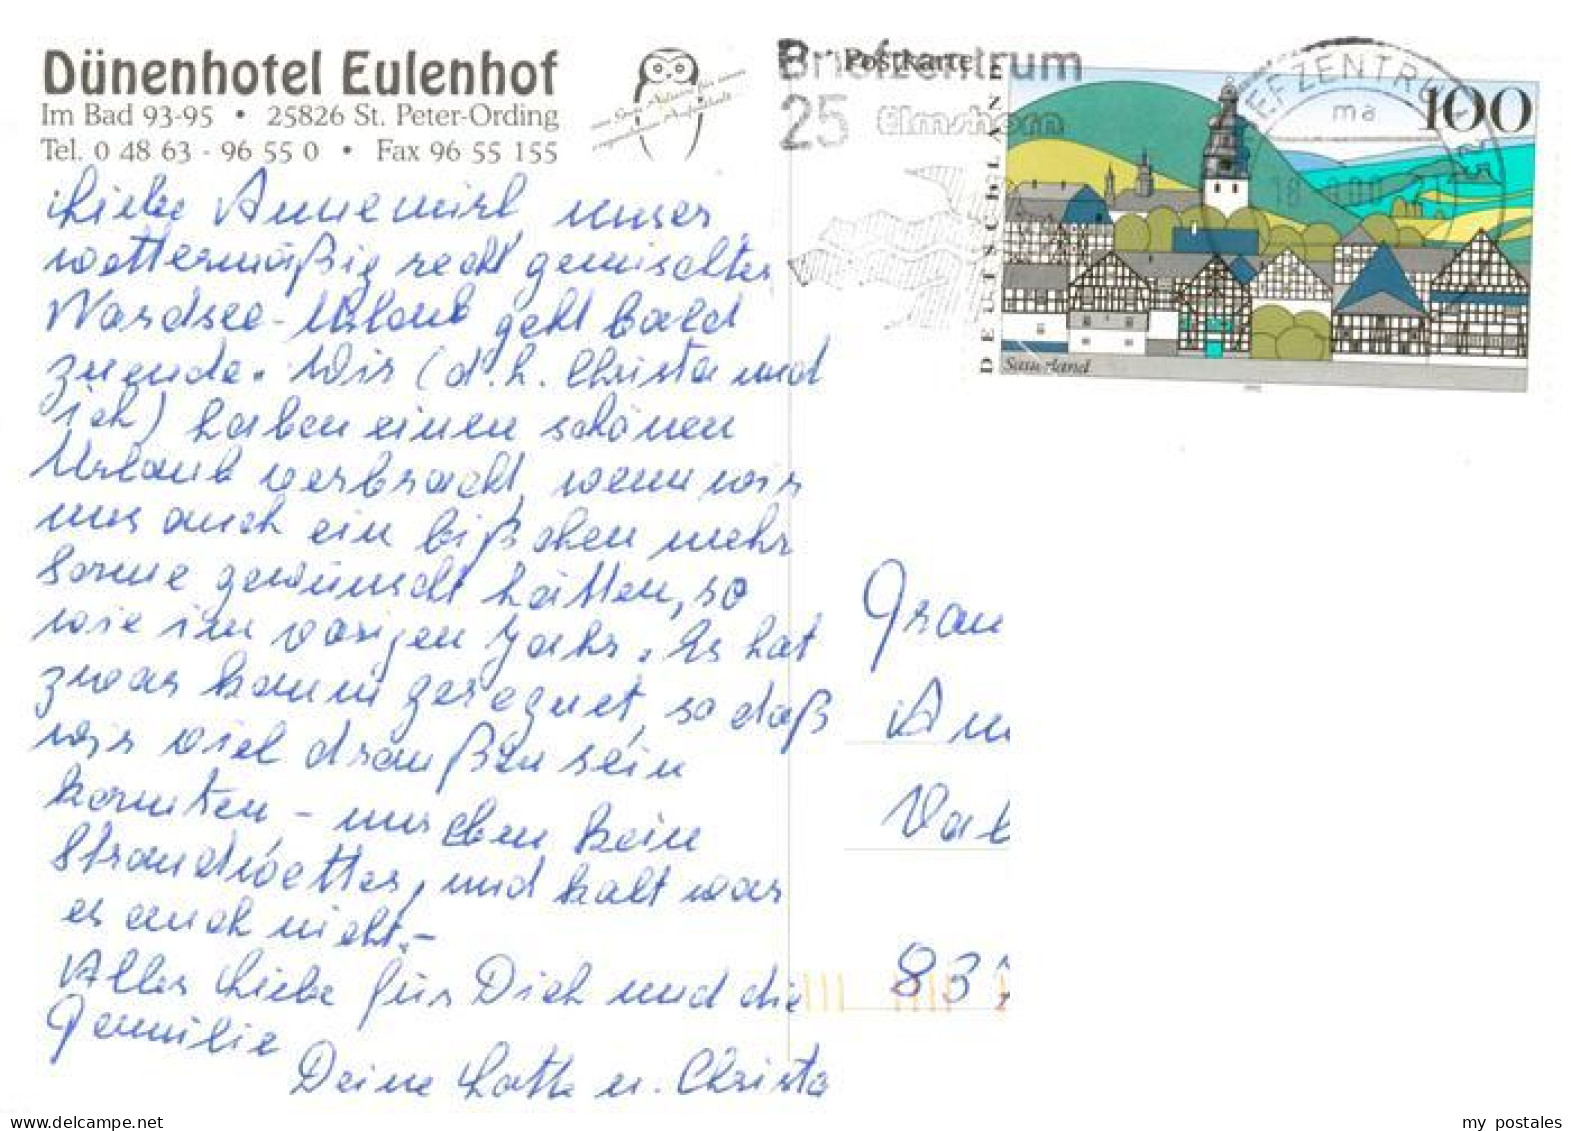 Dünenhotel Eulenhof
Im Bad 93-95 • 25826 St. Peter-Ording
Tel. 0 48 63 - 96 55 0 • Fax 96 55 155
Liebe Annemirl, unser
wettermäßig recht gemischter
Nordsee-Urlaub geht bald
zuende. Wir (d.h. Christa und
ich) haben einen schönen
Urlaub verbracht, wenn wir
uns auch ein bißchen mehr
Sonne gewünscht hätten, so
wie im vorigen Jahr. Es hat
zwar kaum geregnet, so daß
wir viel draußen sein
konnten - nur eben kein
Strandwetter, und kalt war
es auch nicht. -
Alles Liebe für Dich und die
Familie
Deine Lotte u. Christa
Postkarte
Briefzentrum
25 Elmshorn
EFZENTRU
ma
100
DEUTSCHLAND
Sauerland
Frau
An
Vat
83
my postales